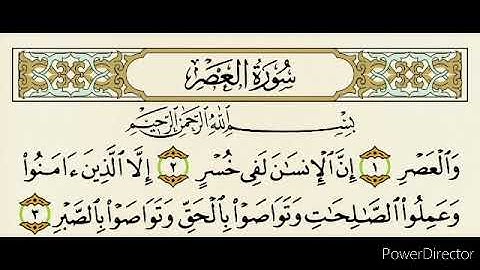 سُورَةُ العَصْرِ
بِسْمِ اللَّهِ الرَّحْمَٰنِ الرَّحِيمِ
وَالْعَصْرِ ١ إِنَّ الْإِنسَانَ لَفِي خُسْرٍ ٢ إِلَّا الَّذِينَ ءَامَنُوا۟
وَعَمِلُوا۟ الصَّالِحَاتِ وَتَوَاصَوْا۟ بِالْحَقِّ وَتَوَاصَوْا۟ بِالصَّبْرِ ٣
PowerDirector